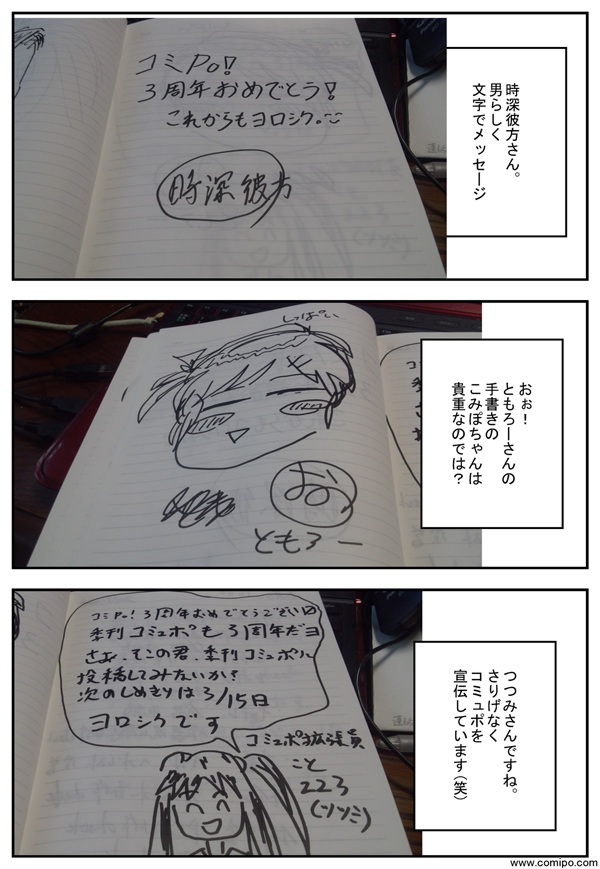 コミPo!
3周年おめでとう!
これからもヨロシク。
時深彼方
時深彼方さん。
男らしく
文字でメッセージ
しっぱい
お
ともろー
おぉ!
ともろーさんの
手書きの
こみぽちゃんは
貴重なのでは?
コミPo!3周年おめでとうござい〼
季刊コミュポも3周年だヨ
さぁ、そこの君、季刊コミュポに
投稿してみたいか?
次のしめきりは3/15日
ヨロシクです
コミュポ拡張員
こと
223
(ツツミ)
つつみさんですね。
さりげなく
コミュポを
宣伝しています(笑)
www.comipo.com